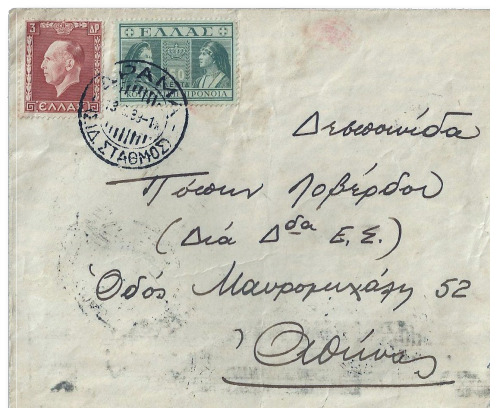 3 ΔΡ
ΕΛΛΑΣ
ΕΛΛΑΣ
ΠΡΟΝΟΙΑ
ΔΡΑΜΑ
ΣΙΔ. ΣΤΑΘΜΟΣ
Δεσποινίδα
Πόπην Λοβέρδου
(Διά Δδα Ε.Σ.)
Οδός Μαυρομιχάλη 52
Αθήνας